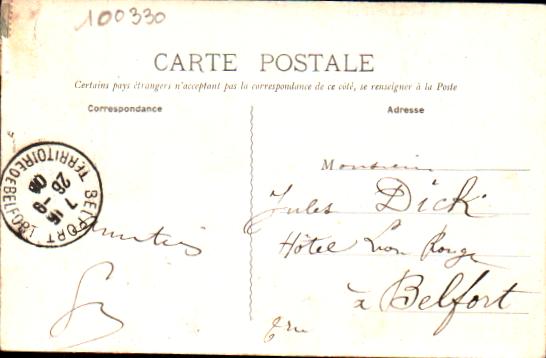 100330
CARTE POSTALE
Certains pays étrangers n'acceptent pas la correspondance de ce côté, se renseigner à la Poste
Correspondance
Adresse
BELFORT
TERRITOIRE DE BELFORT
Monsieur
Jules Dick
Hôtel Lion Rouge
à Belfort